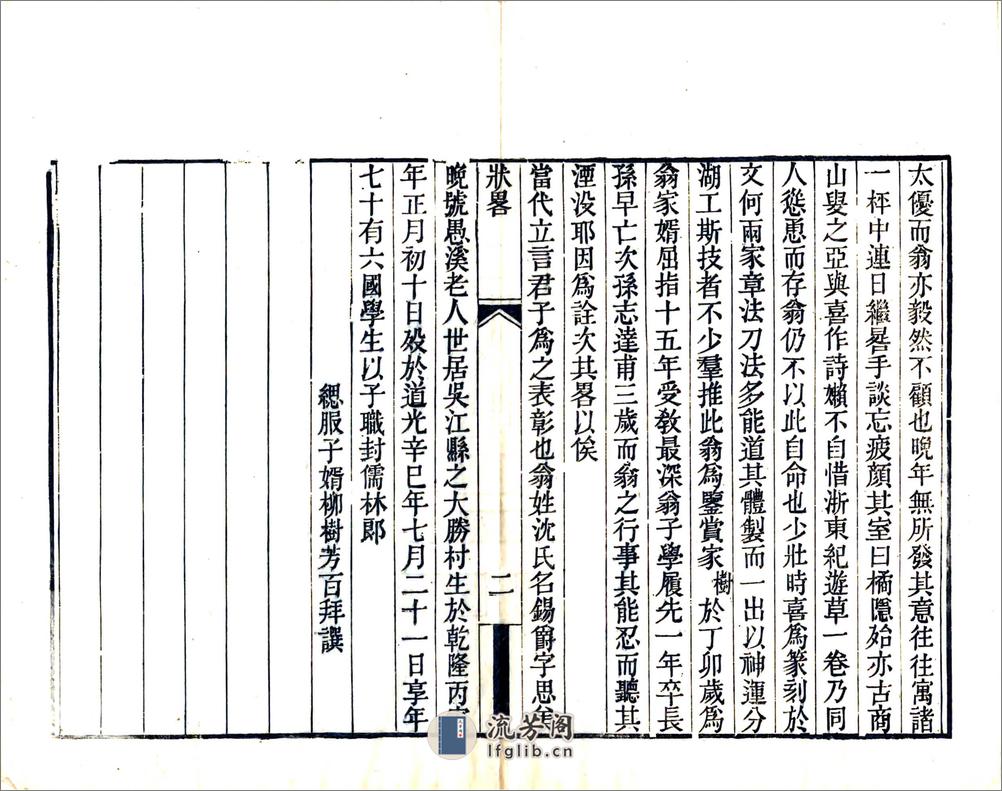 太優而翁亦毅然不顧也晚年無所發其意往往寓諸
一枰中連日繼晷手談忘疲顏其室曰橘隱殆亦古商
山叟之亞與喜作詩嬾不自惜浙東紀遊草一卷乃同
人慫恿而存翁仍不以此自命也少壯時喜爲篆刻於
文何兩家章法刀法多能道其體製而一出以神運分
湖工斯技者不少羣推此翁爲鑒賞家樹於丁卯歲爲
翁家婿屈指十五年受敎最深翁子學履先一年卒長
孫早亡次孫志達甫三歲而翁之行事其能忍而聽其
湮没耶因爲詮次其畧以俟
當代立言君子爲之表彰也翁姓沈氏名錫爵字思
狀畧
二
晚號愚溪老人世居吳江縣之大勝村生於乾隆丙
年正月初十日殁於道光辛巳年七月二十一日享年
七十有六國學生以子職封儒林郎
緦服子婿柳樹芳百拜譔
流芳阁
lfglib.cn